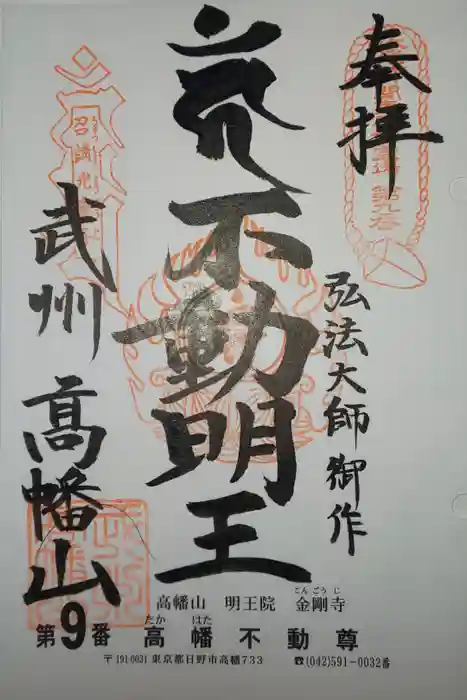 奉拝
弘法大師御作
不動明王
武州
高幡山
高幡山　明王院　金剛寺
こんごうじ
第9番　高幡不動尊
たか　はた
〒191-0031 東京都日野市高幡733　☎(042)591-0032番